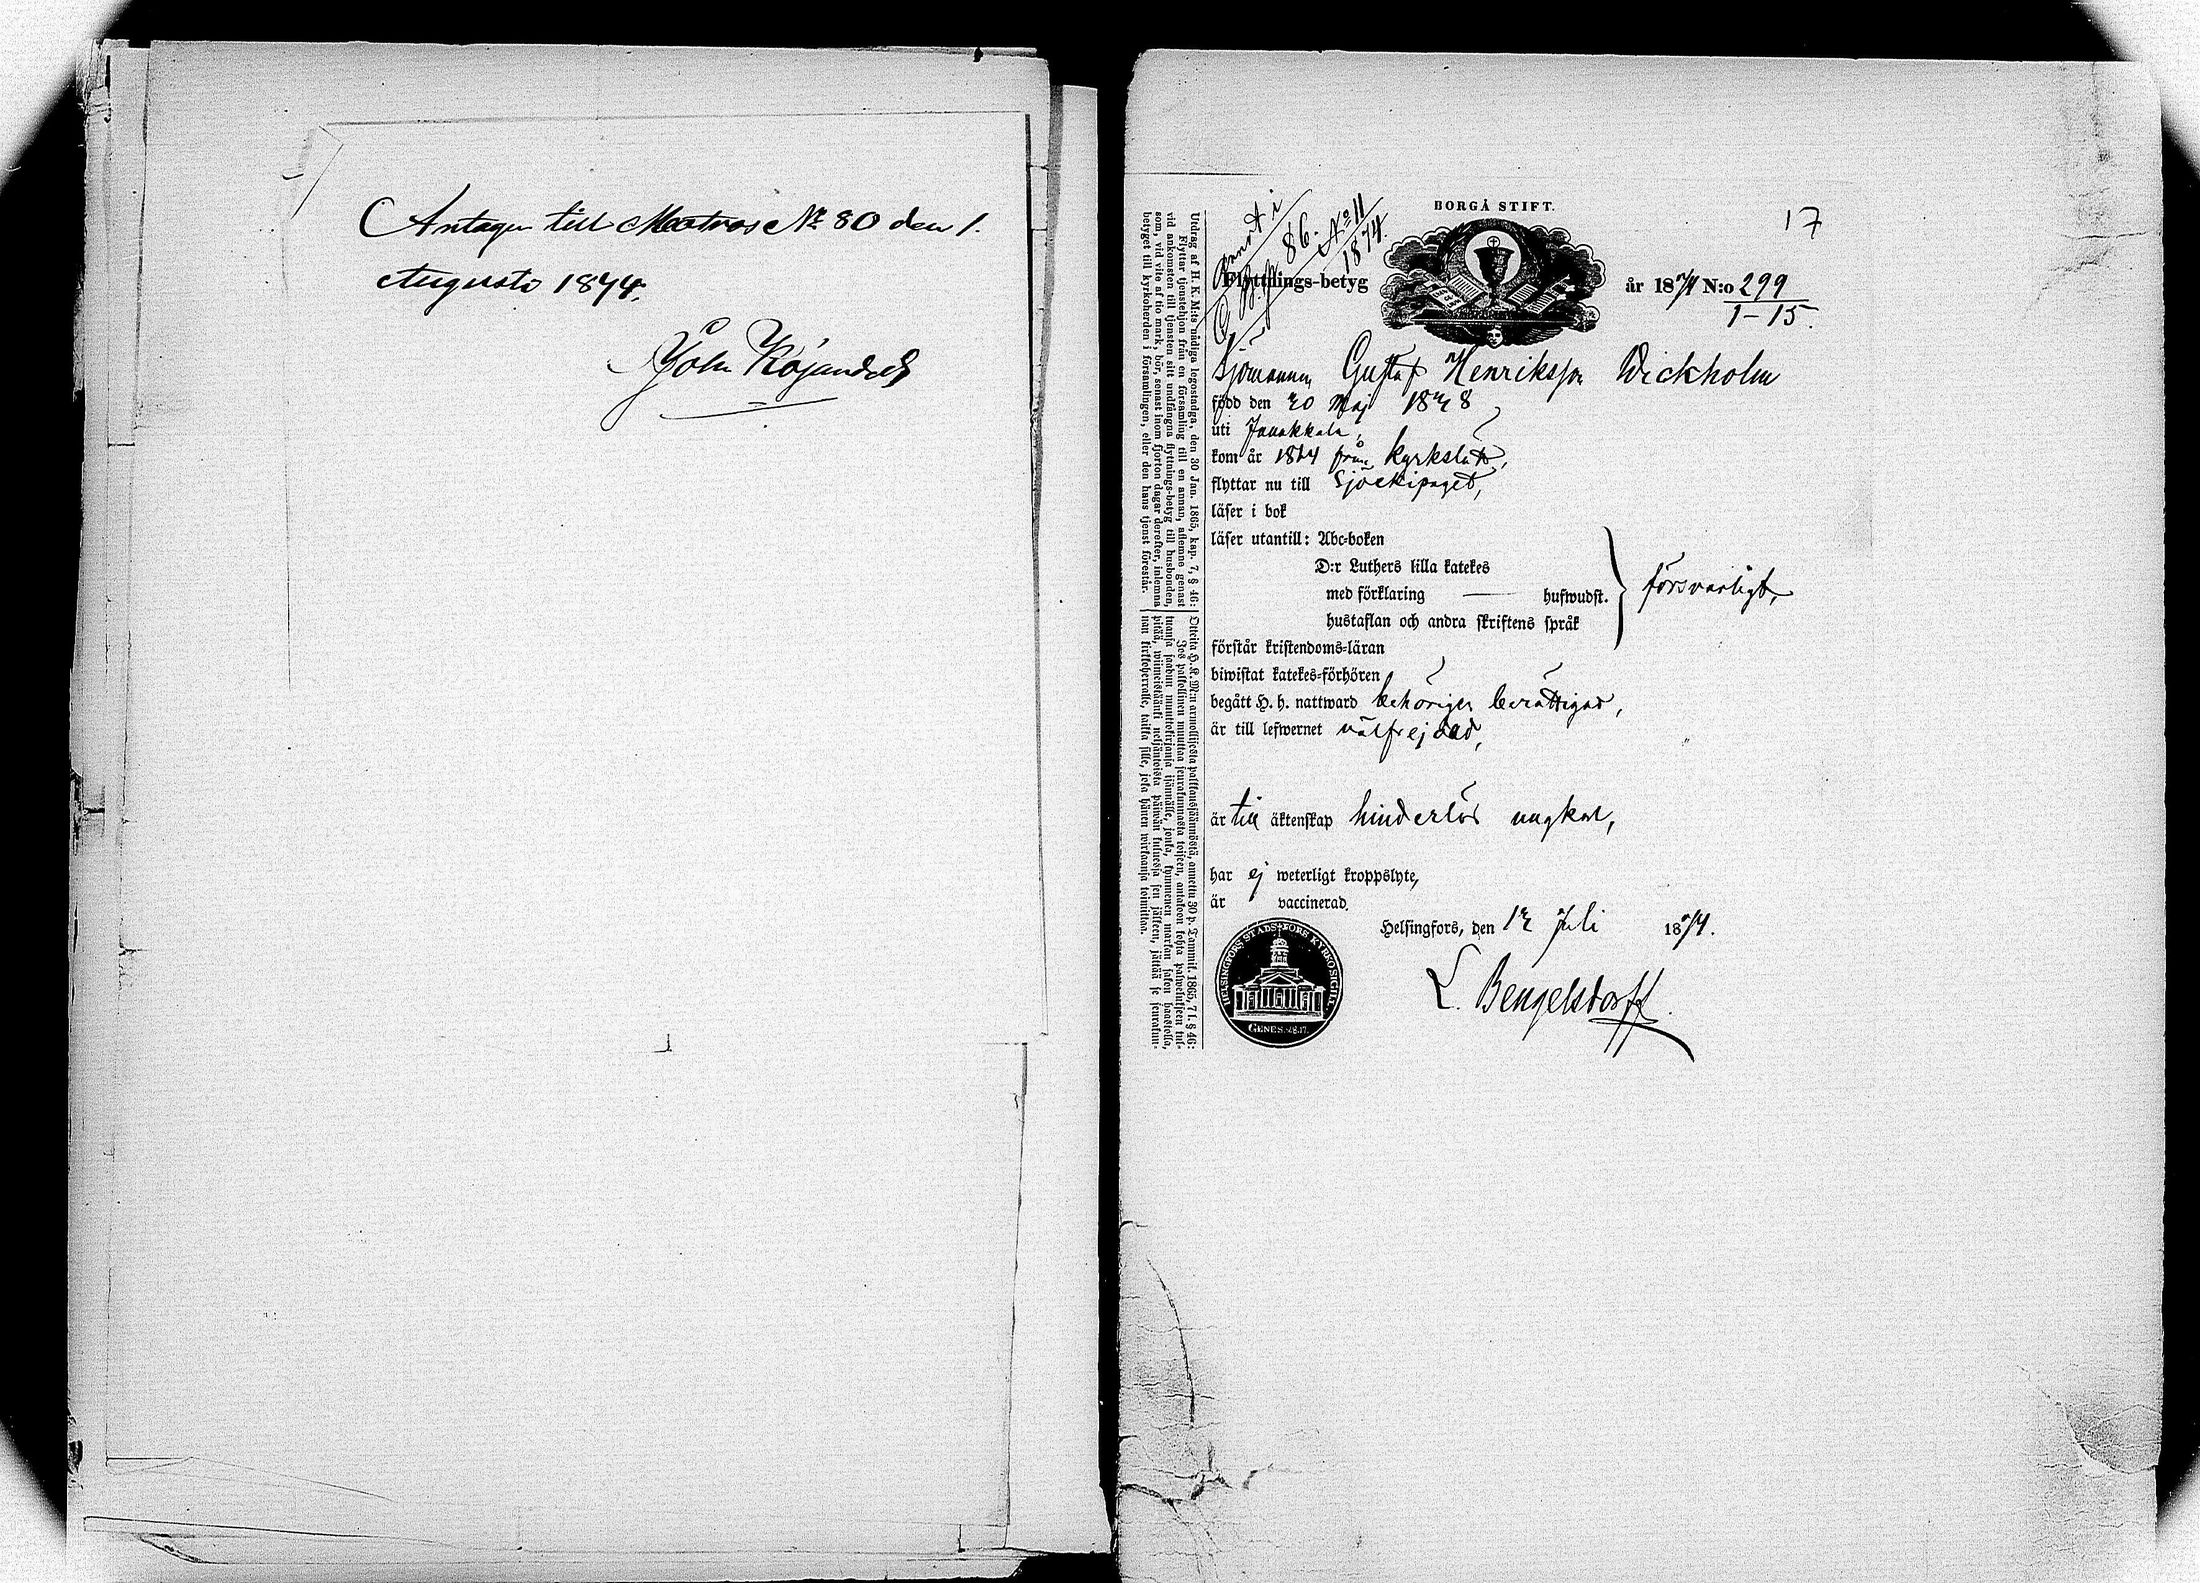 Antagen till Matros № 80 den 1.
Augusti 1874.
John
BORGÅ STIFT.
17
86.
№ 11
1874.
Flyttnings-betyg
år 1874 N:o 299
1-15.
Sjömannen Gustaf Henriksson Wickholm
född den 20 Maj 1848
uti Janakkala,
kom år 1874 från Kyrkslätt,
flyttar nu till Sjöekipaget,
läser i bok
läser utantill: Abc-boken
D:r Luthers lilla katekes
med förklaring — hufwudst.
hustaflan och andra skriftens språk
försvarligt,
förstår kristendoms-läran
biwistat katekes-förhören
begått H. h. nattward behörigen berättigad,
är till lefwernet välfrejdad,
är till äktenskap hinderlös ungkarl,
har ej weterligt kroppslyte,
är vaccinerad.
Helsingfors, den 12 Juli 1874.
L. Bengelsdorff.
HELSINGFORS STADS FÖRS KYRKO SIGILL
GENES. 28.17.
Utdrag af H. K. M:ts nådiga legostadga, den 30 Jan. 1865, kap. 7, § 46:
Flyttar tjenstehjon från en församling till en annan, aflemne genast
vid ankomsten till tjensten sitt undfångna flyttnings-betyg till husbonden,
som, vid vite af tio mark, bör, senast inom fjorton dagar derefter, inlemna
betyget till kyrkoherden i församlingen, eller den hans tjenst förestår.
Otteita H. K. M:n armollisesta palkkaussäännöstä, annettu 30 p. Tammik. 1865, 7 l. § 46:
Jos palkollinen muuttaa seurakunnasta toiseen, antakoon kohta palwelukseen tul-
tuansa saadun muuttokirjansa isännälle, jonka, kymmenen markan sakon haastolla,
pitää, wiimeistäänki neljäntoista päiwän kuluessa sen jälkeen, jättää se seurakun-
nan kirkkoherralle, taikka sille, joka hänen wirkaansa toimittaa.